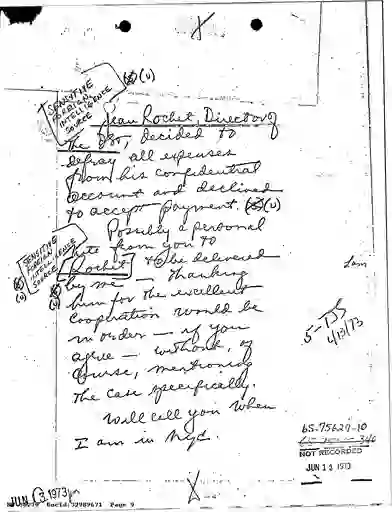 SENSITIVE
FOREIGN
INTELLIGENCE
SOURCE
(U)
Jean Rochet, Director of
The DST, decided to
defray all expenses
from his confidential
account and declined
to accept payment. (U)
Possibly a personal
note from you to
SENSITIVE
FOREIGN
INTELLIGENCE
SOURCE
Rochet to be delivered
(U) by me — thanking
him for the excellent
cooperation would be
in order — if you
agree — without, of
course, mentioning
the case specifically.
Will call you when
I am in Nyc.
4/13/73
65-75629-10
NOT RECORDED
JUN 11 1973
JUN 1973
DocId:32989671 Page 9